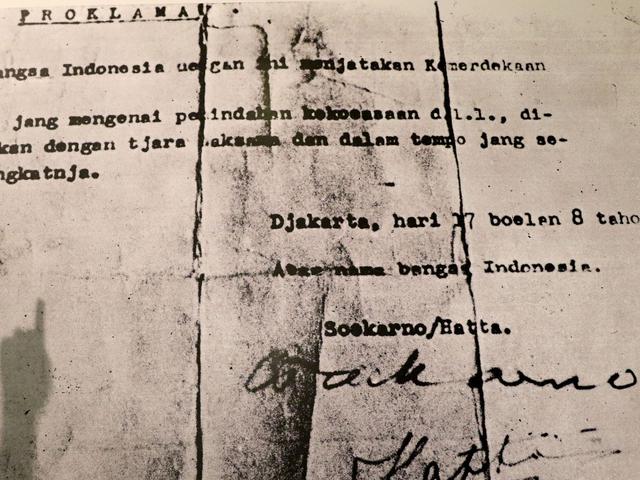 P R O K L A M A
angsa Indonesia dengan ini menjatakan Kemerdekaan
jang mengenai pemindahan kekoeasaan d.l.l., di-
kan dengan tjara saksama dan dalam tempo jang se-
ngkatnja.
Djakarta, hari 17 boelan 8 taho
Atas nama bangsa Indonesia.
Soekarno/Hatta.
Soekarno
Hatta